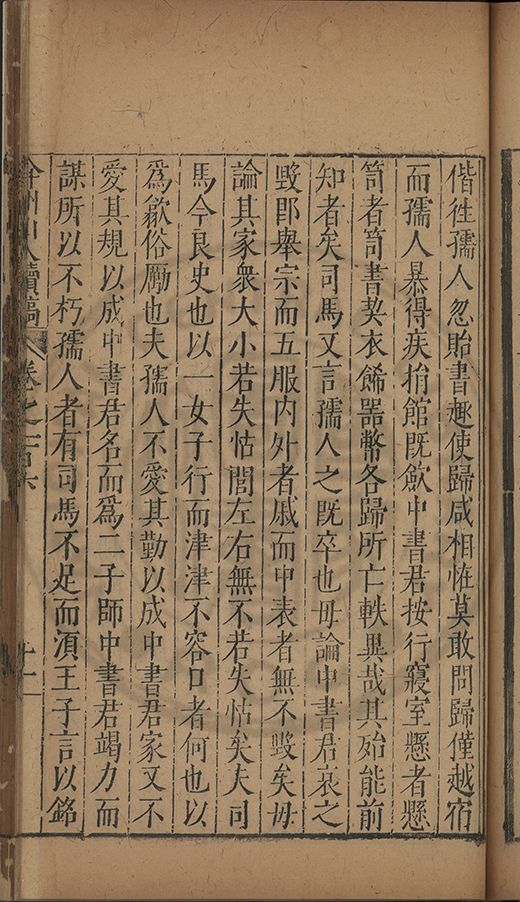 偕徃孺人忽貽書趣使歸咸相恠莫敢問歸僅越宿
而孺人暴得疾捐館既歛中書君按行寢室懸者懸
笥者笥書契衣餙器幣各歸所亡軼異哉其殆能前
知者矣司馬又言孺人之既卒也毋論中書君哀之
毀即舉宗而五服内外者戚而中表者無不毀矣毋
論其家衆大小若失怙閭左右無不若失怙矣夫司
馬今良史也以一女子行而津津不容口者何也以
為歙俗勵也夫孺人不愛其勤以成中書君家又不
愛其規以成中書君名而爲二子師中書君竭力而
謀所以不朽孺人者有司馬不足而湏王子言以銘
弇州山人續稿 卷之一百六
十二